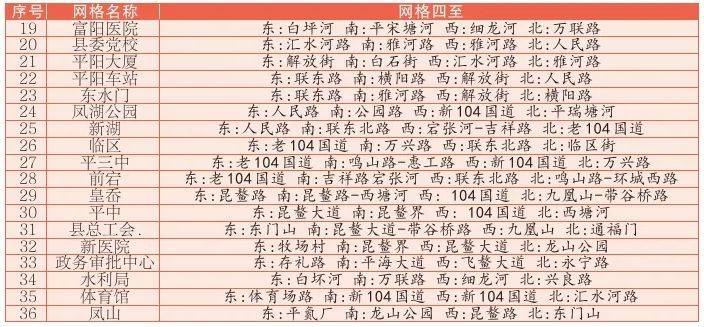 序号 网格名称 网格四至
19 富阳医院 东:白坪河 南:平宋塘河 西:细龙河 北:万联路
20 县委党校 东:汇水河路 南:雅河路 西:雅河路 北:人民路
21 平阳大厦 东:解放街 南:白石街 西:汇水河路 北:雅河路
22 平阳车站 东:联东路 南:横阳路 西:解放街 北:人民路
23 东水门 东:联东路 南:雅河路 西:解放街 北:横阳路
24 凤湖公园 东:人民路 南:公园路 西:新104国道 北:平瑞塘河
25 新湖 东:人民路 南:联东北路 西:宕张河-吉祥路 北:老104国道
26 临区 东:老104国道 南:万兴路 西:联东北路 北:临区街
27 平三中 东:老104国道 南:鸣山路-惠工路 西:新104国道 北:万兴路
28 前宕 东:老104国道 南:吉祥路宕张河 西:联东北路 北:鸣山路-环城西路
29 皇岙 东:昆鳌路 南:昆鳌路-西塘河 西: 104国道 北:九凰山-带谷桥路
30 平中 东:昆鳌大道 南:昆鳌界 西: 104国道 北:西塘河
31 县总工会. 东:东门山 南:昆鳌大道-带谷桥路 西:九凰山 北:通福门
32 新医院 东:牧场村 南:昆鳌界 西:昆鳌大道 北:龙山公园
33 政务审批中心 东:存礼路 南:平海大道 西:飞鳌大道 北:永宁路
34 水利局 东:白坯河 南:万联路 西:细龙河 北:兴良路
35 体育馆 东:体育场路 南:新104国道 西:新104国道 北:汇水河路
36 凤山 东:平氮厂 南:龙山公园 西:昆鳌路 北:东门山